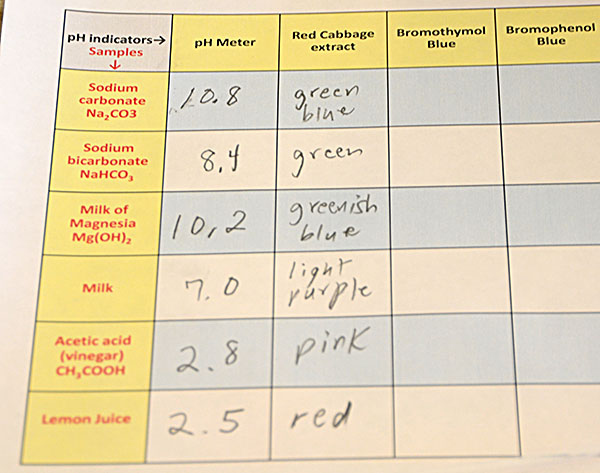 pH indicators→ pH Meter Red Cabbage extract Bromothymol Blue Bromophenol Blue
Samples
↓
Sodium carbonate Na₂CO3 10.8 green blue
Sodium bicarbonate NaHCO₃ 8.4 green
Milk of Magnesia Mg(OH)₂ 10.2 greenish blue
Milk 7.0 light purple
Acetic acid (vinegar) CH₃COOH 2.8 pink
Lemon Juice 2.5 red